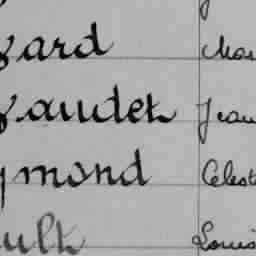 gard Char
gaudet Jean
ymond Célest
ault Louis